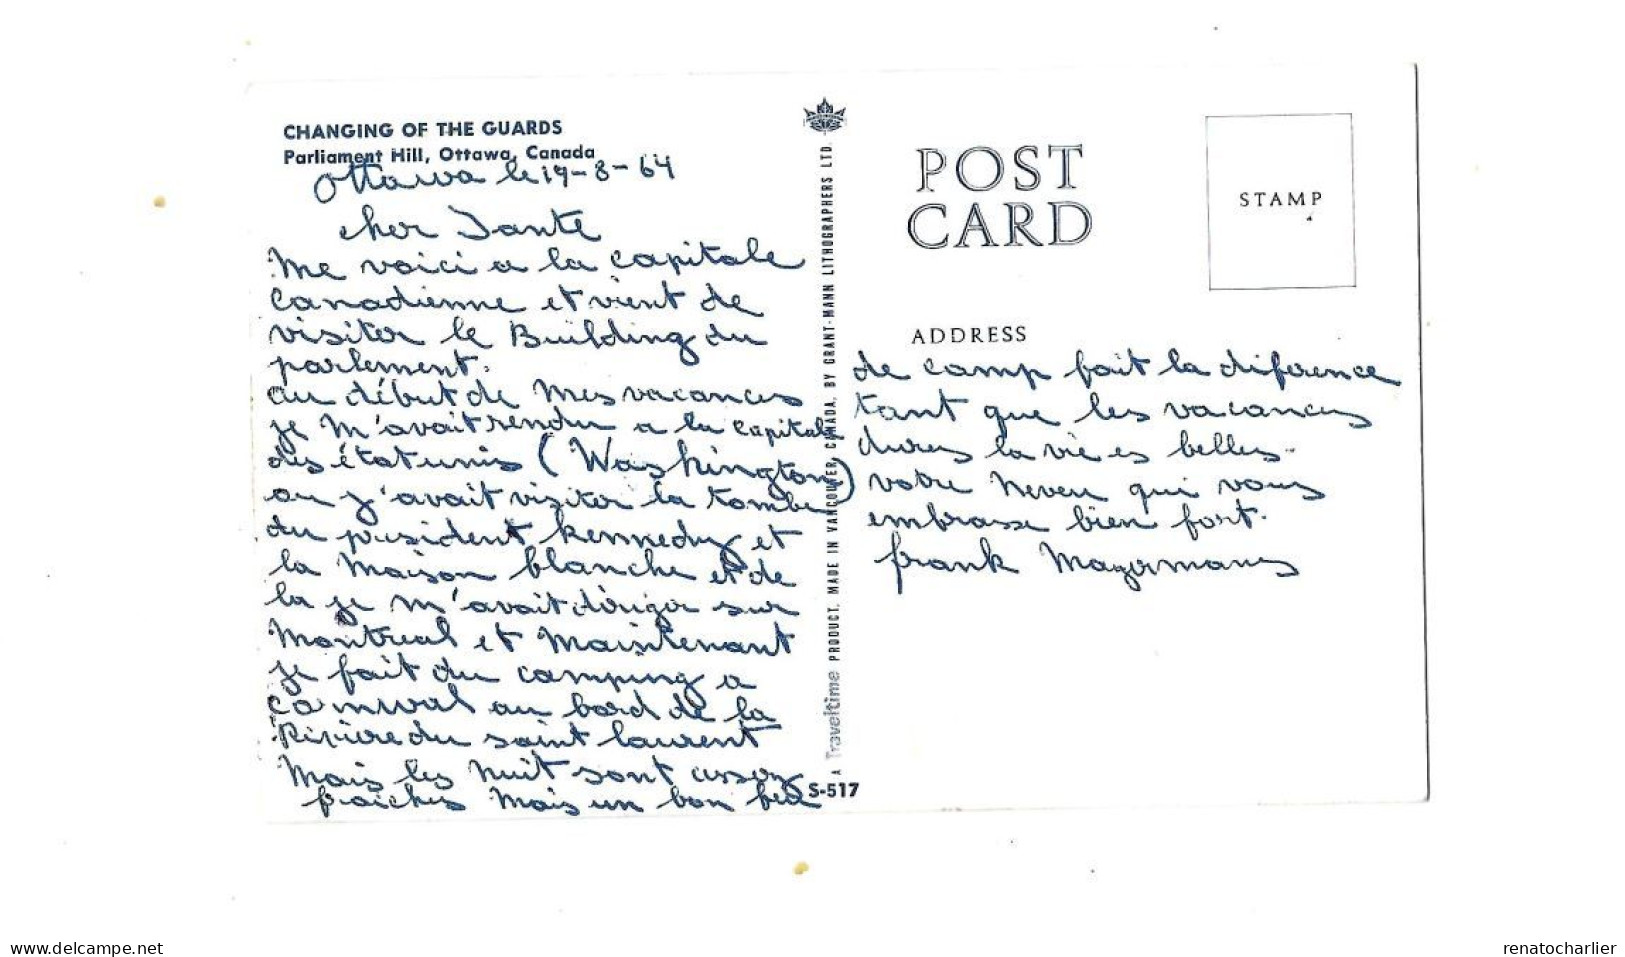 CHANGING OF THE GUARDS
Parliament Hill, Ottawa, Canada
Ottawa le 19-8-64
cher Tante
Me voici a la capitale
Canadienne et vient de
visiter le Building du
parlement.
au début de mes vacances
je m'avait rendu a la capitale
des état unis (Washington)
ou j'avait visiter la tombe
du président Kennedy et
la Maison blanche et de
la je m'avait diriger sur
Montreal et Maintenant
je fait du camping a
Cornwal au bord de la
Rivière du saint laurent
Mais les nuit sont assez
fraiches mais un bon feu
A Traveltime PRODUCT. MADE IN VANCOUVER, CANADA, BY GRANT-MANN LITHOGRAPHERS LTD.
S-517
POST
CARD
STAMP
ADDRESS
de camp fait la diference
tant que les vacances
dures la vie es belles.
votre neveu qui vous
embrasse bien fort.
frank Mazermans
www.delcampe.net
renatocharlier